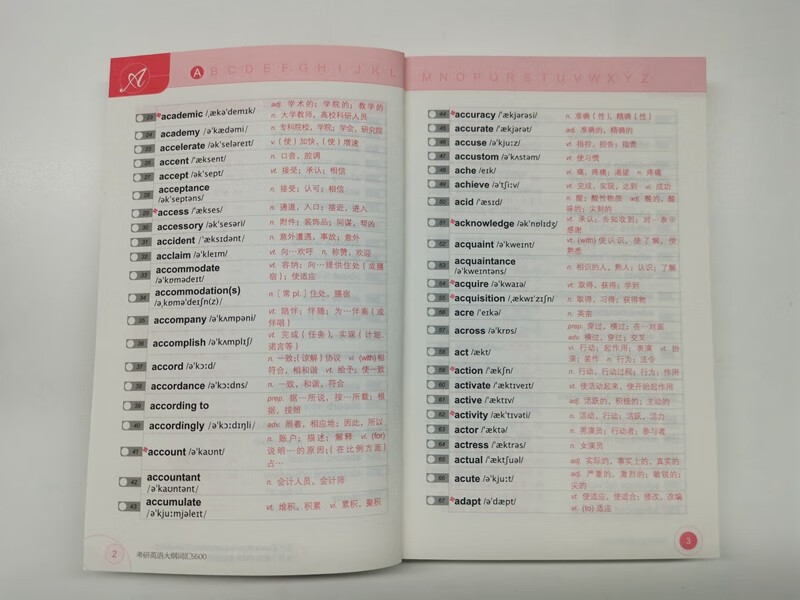 A
A B C D E F G H I J K L
23 *academic /ˌækə'demɪk/ adj. 学术的；学院的；教学的
n. 大学教师，高校科研人员
24 academy /ə'kædəmi/ n. 专科院校，学院；学会，研究院
25 accelerate /ək'seləreɪt/ v. (使) 加快，(使) 增速
26 accent /'æksent/ n. 口音，腔调
27 accept /ək'sept/ vt. 接受；承认；相信
28 acceptance
/ək'septəns/ n. 接受；认可；相信
29 *access /'ækses/ n. 通道，入口；接近，进入
30 accessory /ək'sesəri/ n. 附件；装饰品；同谋，帮凶
31 accident /'æksɪdənt/ n. 意外遭遇，事故；意外
32 acclaim /ə'kleɪm/ vt. 向…欢呼 n. 称赞，欢迎
33 accommodate
/ə'kɒmədeɪt/ vt. 容纳；向…提供住处（或膳
宿）；使适应
34 accommodation(s)
/əˌkɒmə'deɪʃn(z)/ n. [常 pl.] 住处，膳宿
35 accompany /ə'kʌmpəni/ vt. 陪伴；伴随；为…伴奏（或
伴唱）
36 accomplish /ə'kʌmplɪʃ/ vt. 完成（任务），实现（计划、
诺言等）
37 accord /ə'kɔːd/ n. 一致；(谅解) 协议 vi. (with) 相
符合，相和谐 vt. 给予；使一致
38 accordance /ə'kɔːdns/ n. 一致，和谐，符合
39 according to prep. 据…所说，按…所载；根
据，按照
40 accordingly /ə'kɔːdɪŋli/ adv. 照着，相应地；因此，所以
41 *account /ə'kaʊnt/ n. 账户；描述；解释 vi. (for)
说明…的原因；（在比例方面）
占…
42 accountant
/ə'kaʊntənt/ n. 会计人员，会计师
43 accumulate
/ə'kjuːmjəleɪt/ vt. 堆积，积累 vi. 累积，聚积
2 考研英语大纲词汇5500
M N O P Q R S T U V W X Y Z
44 *accuracy /'ækjərəsi/ n. 准确（性），精确（性）
45 accurate /'ækjərət/ adj. 准确的，精确的
46 accuse /ə'kjuːz/ vt. 指控，控告；指责
47 accustom /ə'kʌstəm/ vt. 使习惯
48 ache /eɪk/ vi. 痛，疼痛；渴望 n. 疼痛
49 achieve /ə'tʃiːv/ vt. 完成，实现，达到 vi. 成功
50 acid /'æsɪd/ n. 酸；酸性物质 adj. 酸的，酸
味的；尖刻的
51 *acknowledge /ək'nɒlɪdʒ/ vt. 承认；告知收到；对…表示
感谢
52 acquaint /ə'kweɪnt/ vt. (with) 使认识，使了解，使
熟悉
53 acquaintance
/ə'kweɪntəns/ n. 相识的人，熟人；认识；了解
54 *acquire /ə'kwaɪə/ vt. 取得，获得；学到
55 *acquisition /ˌækwɪ'zɪʃn/ n. 取得，习得；获得物
56 acre /'eɪkə/ n. 英亩
57 across /ə'krɒs/ prep. 穿过，横过；在…对面
adv. 横过，穿过；交叉
58 act /ækt/ vi. 行动；起作用；表演 vt. 扮
演；装作 n. 行为；法令
59 *action /'ækʃn/ n. 行动，行动过程；行为；作用
60 activate /'æktɪveɪt/ vt. 使活动起来，使开始起作用
61 active /'æktɪv/ adj. 活跃的，积极的；主动的
62 *activity /æk'tɪvəti/ n. 活动，行动；活跃，活力
63 actor /'æktə/ n. 男演员；行动者；参与者
64 actress /'æktrəs/ n. 女演员
65 actual /'æktʃuəl/ adj. 实际的，事实上的，真实的
66 acute /ə'kjuːt/ adj. 严重的，激烈的；敏锐的；
尖的
67 *adapt /ə'dæpt/ vt. 使适应，使适合；修改，改编
vi. (to) 适应
3